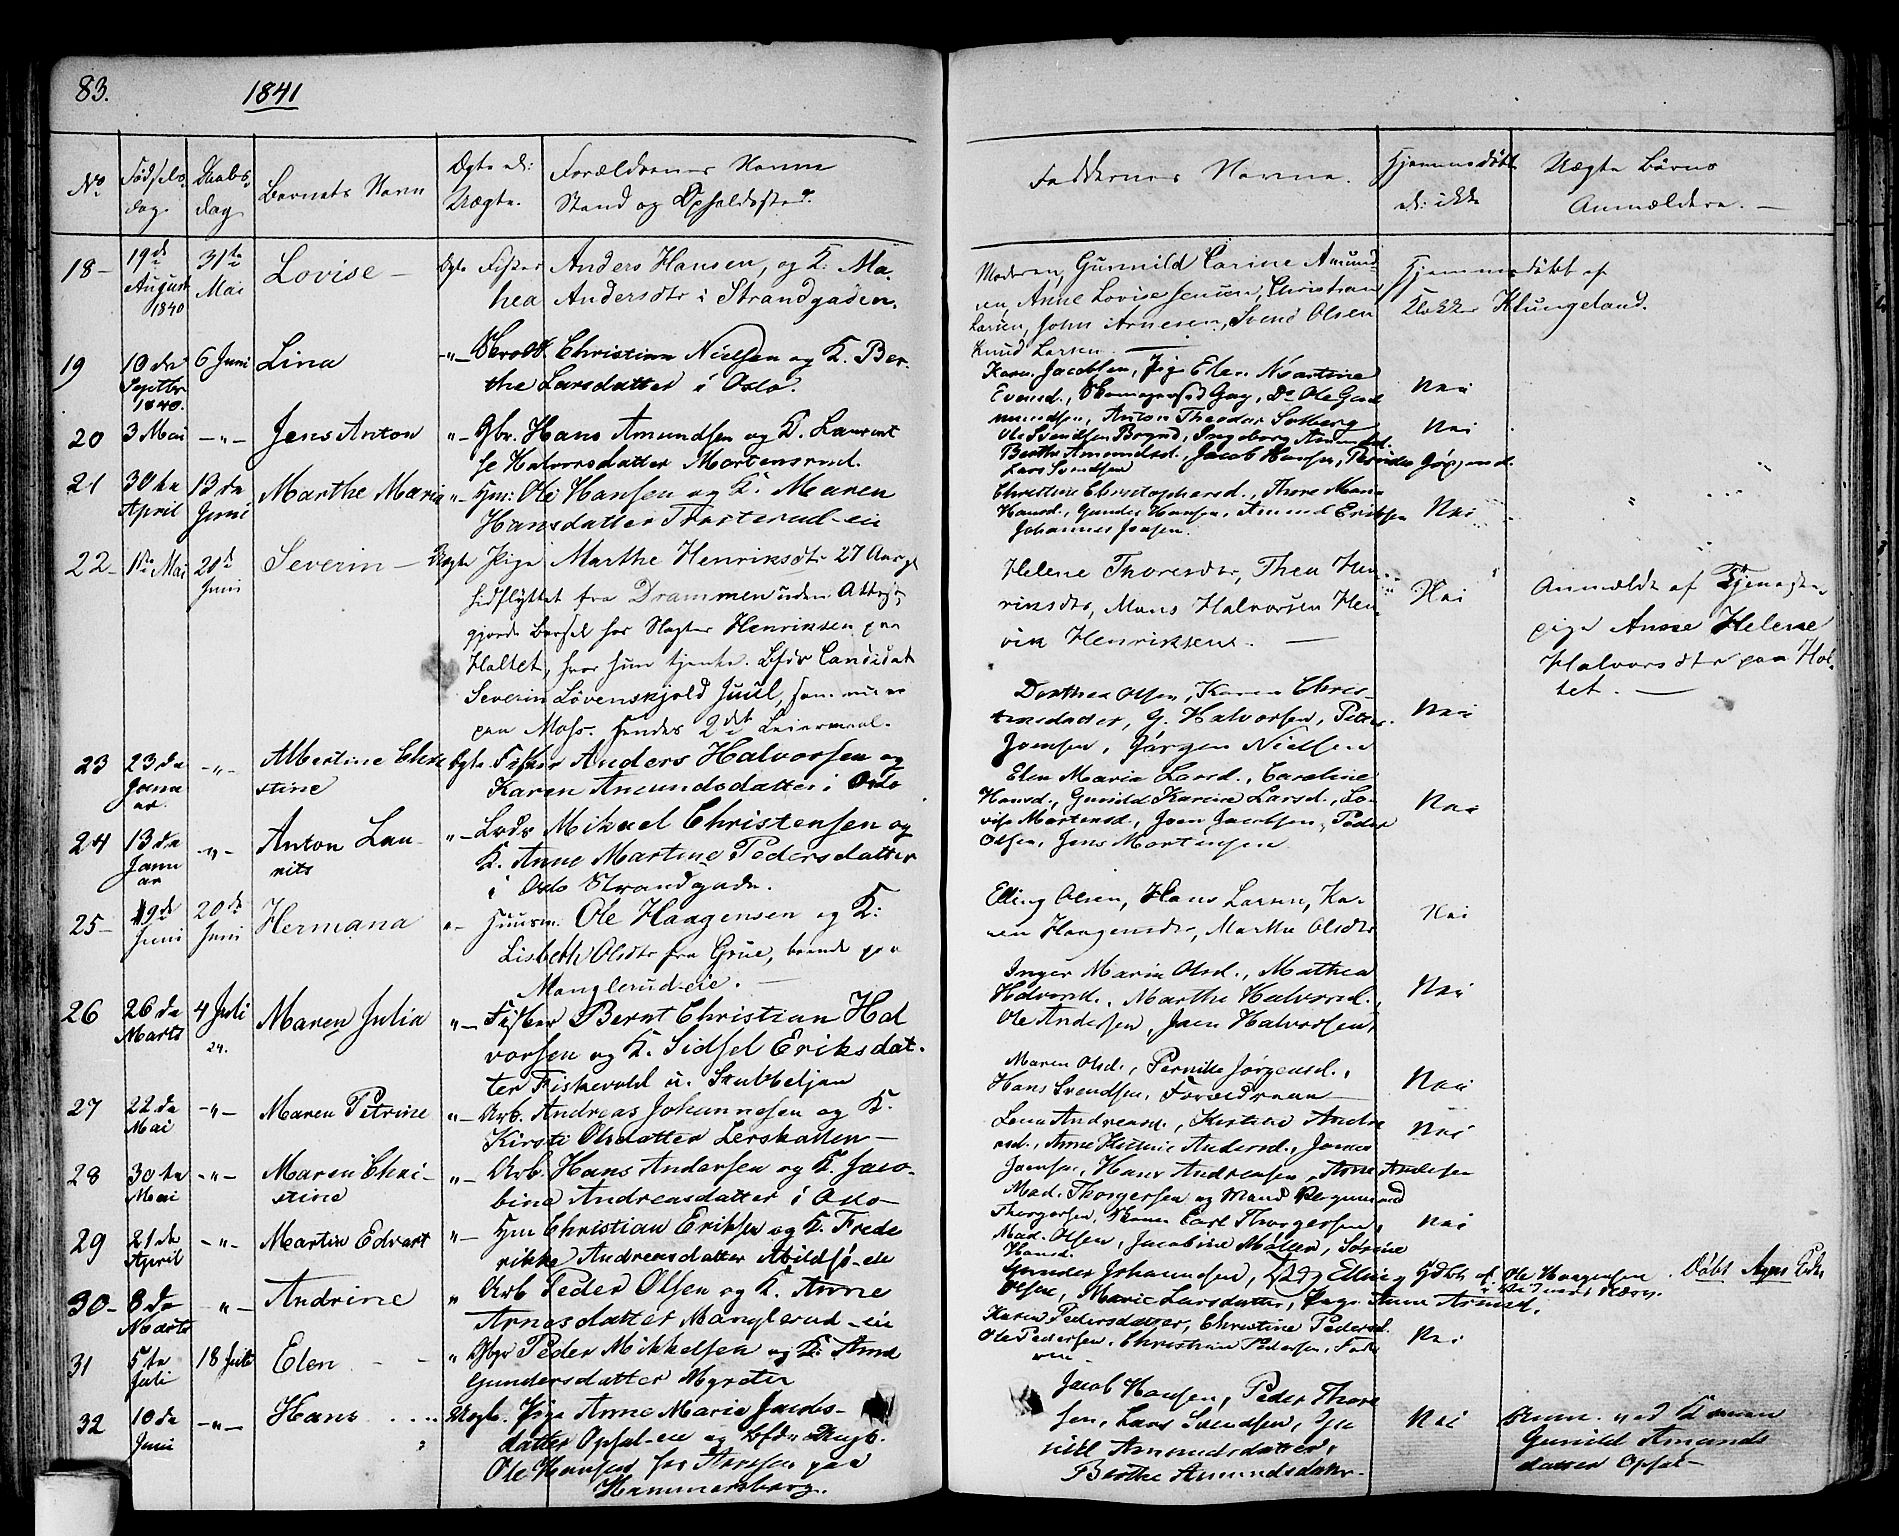 83. 1841
No Fødsels- dag. Daabs- dag Barnets Navn Ægte el: Uægte. Forældrenes Navne Stand og Opholdssted.
Faddernes Navne. Hjemmedøbt el: ikke Uægte Børns Anmeldere. —
18 – 19de August 1840 31te Mai Lovise – Ægte Fisker Anders Hansen, og K. Ma-
hea Andersdtr i Strandgaden.
Moderen, Gunnild Carine Amund-
sen, Anne Lovise Jensen, Christian
Larsen, John Arnesen, Svend Olsen
Knud Larsen. —
Hjemmedøbt af
Klokker Klungeland.
19 10de Septbr 1840. 6 Juni Lina -"- Christian Nielsen og K. Ber-
the Larsdatter i Oslo.
Karen Jacobsen, Pige Elen Martine
Evensd., Ole Gud-
mundsen, Anton Theodor Solberg
Nei
20 3 Mai -"- Jens Anton "- Gbr. Hans Amundsen og K. Laurent
se Halvorsdatter Mortensrud.
Ole Svendsen Bognd, Ingeborg Amundsd.
Berthe Amundsd., Jacob Hansen, Peder Jørgensd.
Lars Svendsen
Nei
21 30te April 13de Juni Marthe Maria "- Hm: Ole Hansen og K. Maren
Hansdatter Trosterud-eie
Christine Christophersd., Thore Maria
Hansd., Gunder Hansen, Amund Eriksen
Johannes Jonsen.
Nei
22 – 1ste Mai 20de Juni Severin – Uægte Pige Marthe Henriksdtr 27 Aar gl
hidflyttet fra Drammen uden Attest,
gjorde Barsel hos Slagter Henriksen paa
Haltet, hvor hun tjente. Bfdr Candidat
Severin Løvenskjold Juul, som nu er
paa Moss. Hendes 2det Leiermaal.
Helene Thoresdtr, Thea Hen-
riksdtr, Mons Halvorsen Hen-
rik Henriksens. —
Nei
Anmeldt af Tjeneste-
pige Anne Helene
Halvorsdtr paa Hal-
tet. —
23 23de Janu ar. -"- Albertine Chri
stine Ægte Fisker Anders Halvorsen og
Karen Amundsdatter i Oslo
Dorthea Olsen, Karen Chris-
tensdatter, G. Halvorsen, Peter
Joensen, Jørgen Nielsen
Nei
24 13de Janu ar -"- Anton Lau-
rits "- Lods Mikael Christensen og
K. Anne Martine Pedersdatter
i Oslo Strandgade.
Elen Maria Larsd., Caroline
Hansd., Gunild Karine Larsd., Lo-
vise Martensd., Joen Jacobsen, Peder
Olsen, Jens Mortensen
Nei
25 – 19de Juni 20de Juni Hermana "- Huusm. Ole Haagensen og K:
Lisbeth Olsdtr fra Grue, boende paa
Manglerud-eie. —
Elling Olsen, Hans Larsen, Ka-
ren Haagensdtr, Marthe Olsdtr
Nei
26 26de Marts 4 Juli 24. Maren Julia "- Fisker Bernt Christian Hal
vorsen og K. Sidsel Eriksdat-
ter Fiskevold u. Stubbeljan
Inger Maria Olsd., Mathea
Halvorsd., Marthe Halvorsd.,
Ole Andersen, Joen Halvorsen
Nei
27 22de Mai -"- Maren Petrine "- Arb. Andreas Johannesen og K.
Kirsti Olsdatter Lerskallen –
Maren Olsd., Pernille Jørgensd.,
Hans Svendsen, Forældrene —
Nei
28 30te Mai -"- Maren Chri-
stine "- Arb. Hans Andersen og K. Jaco-
bine Andreasdatter i Oslo –
Lena Andreasd., Kirstine Andre
asd., Anne Kirstine Andersd., Jonas
Joensen, Hans Andreasen, Arne Andersen
Nei
29 21de April -"- Martin Edvart "- Hm Christian Eriksen og K. Frede
rikke Andreasdatter Abildsø-eie
Mad. Thorgersen og Mand
Thorgersen, Carl Thorgersen,
Mad. Olsen, Jacobine Møller, Sørine
Hansd.
Nei
30 – 8de Marts -"- Andrine " Arb Peder Olsen og K. Anne
Arnesdatter Manglerud-eie
Gunder Johannesen, Elling
Olsen, Marie Larsdatter, Pige Anne Arnesd.
Hdbt af Ole Haagensen . Døbt Agns Eie
31 5te Juli 18 Juli Elen – – " Gbr Peder Mikkelsen og K. Anne
Gundersdatter Myrer
Karen Pedersdatter, Christine Pedersd.
Ole Pedersen, Christian Pedersen, Fade
ren –
Nei
32 10de Juni -"- Hans . . .. Uægt. Pige Anne Maria Jacobs-
datter Opsal-eie og Bfdr Ungk.
Ole Hansen hos Larsen paa
Hammersborg.
Jacob Hansen, Peder Thore
sen, Lars Svendsen, Gu
nild Amundsdatter,
Berthe Amundsdatter.
Nei
Anm. ved Konen
Gunild Amunds
datter Opsal –